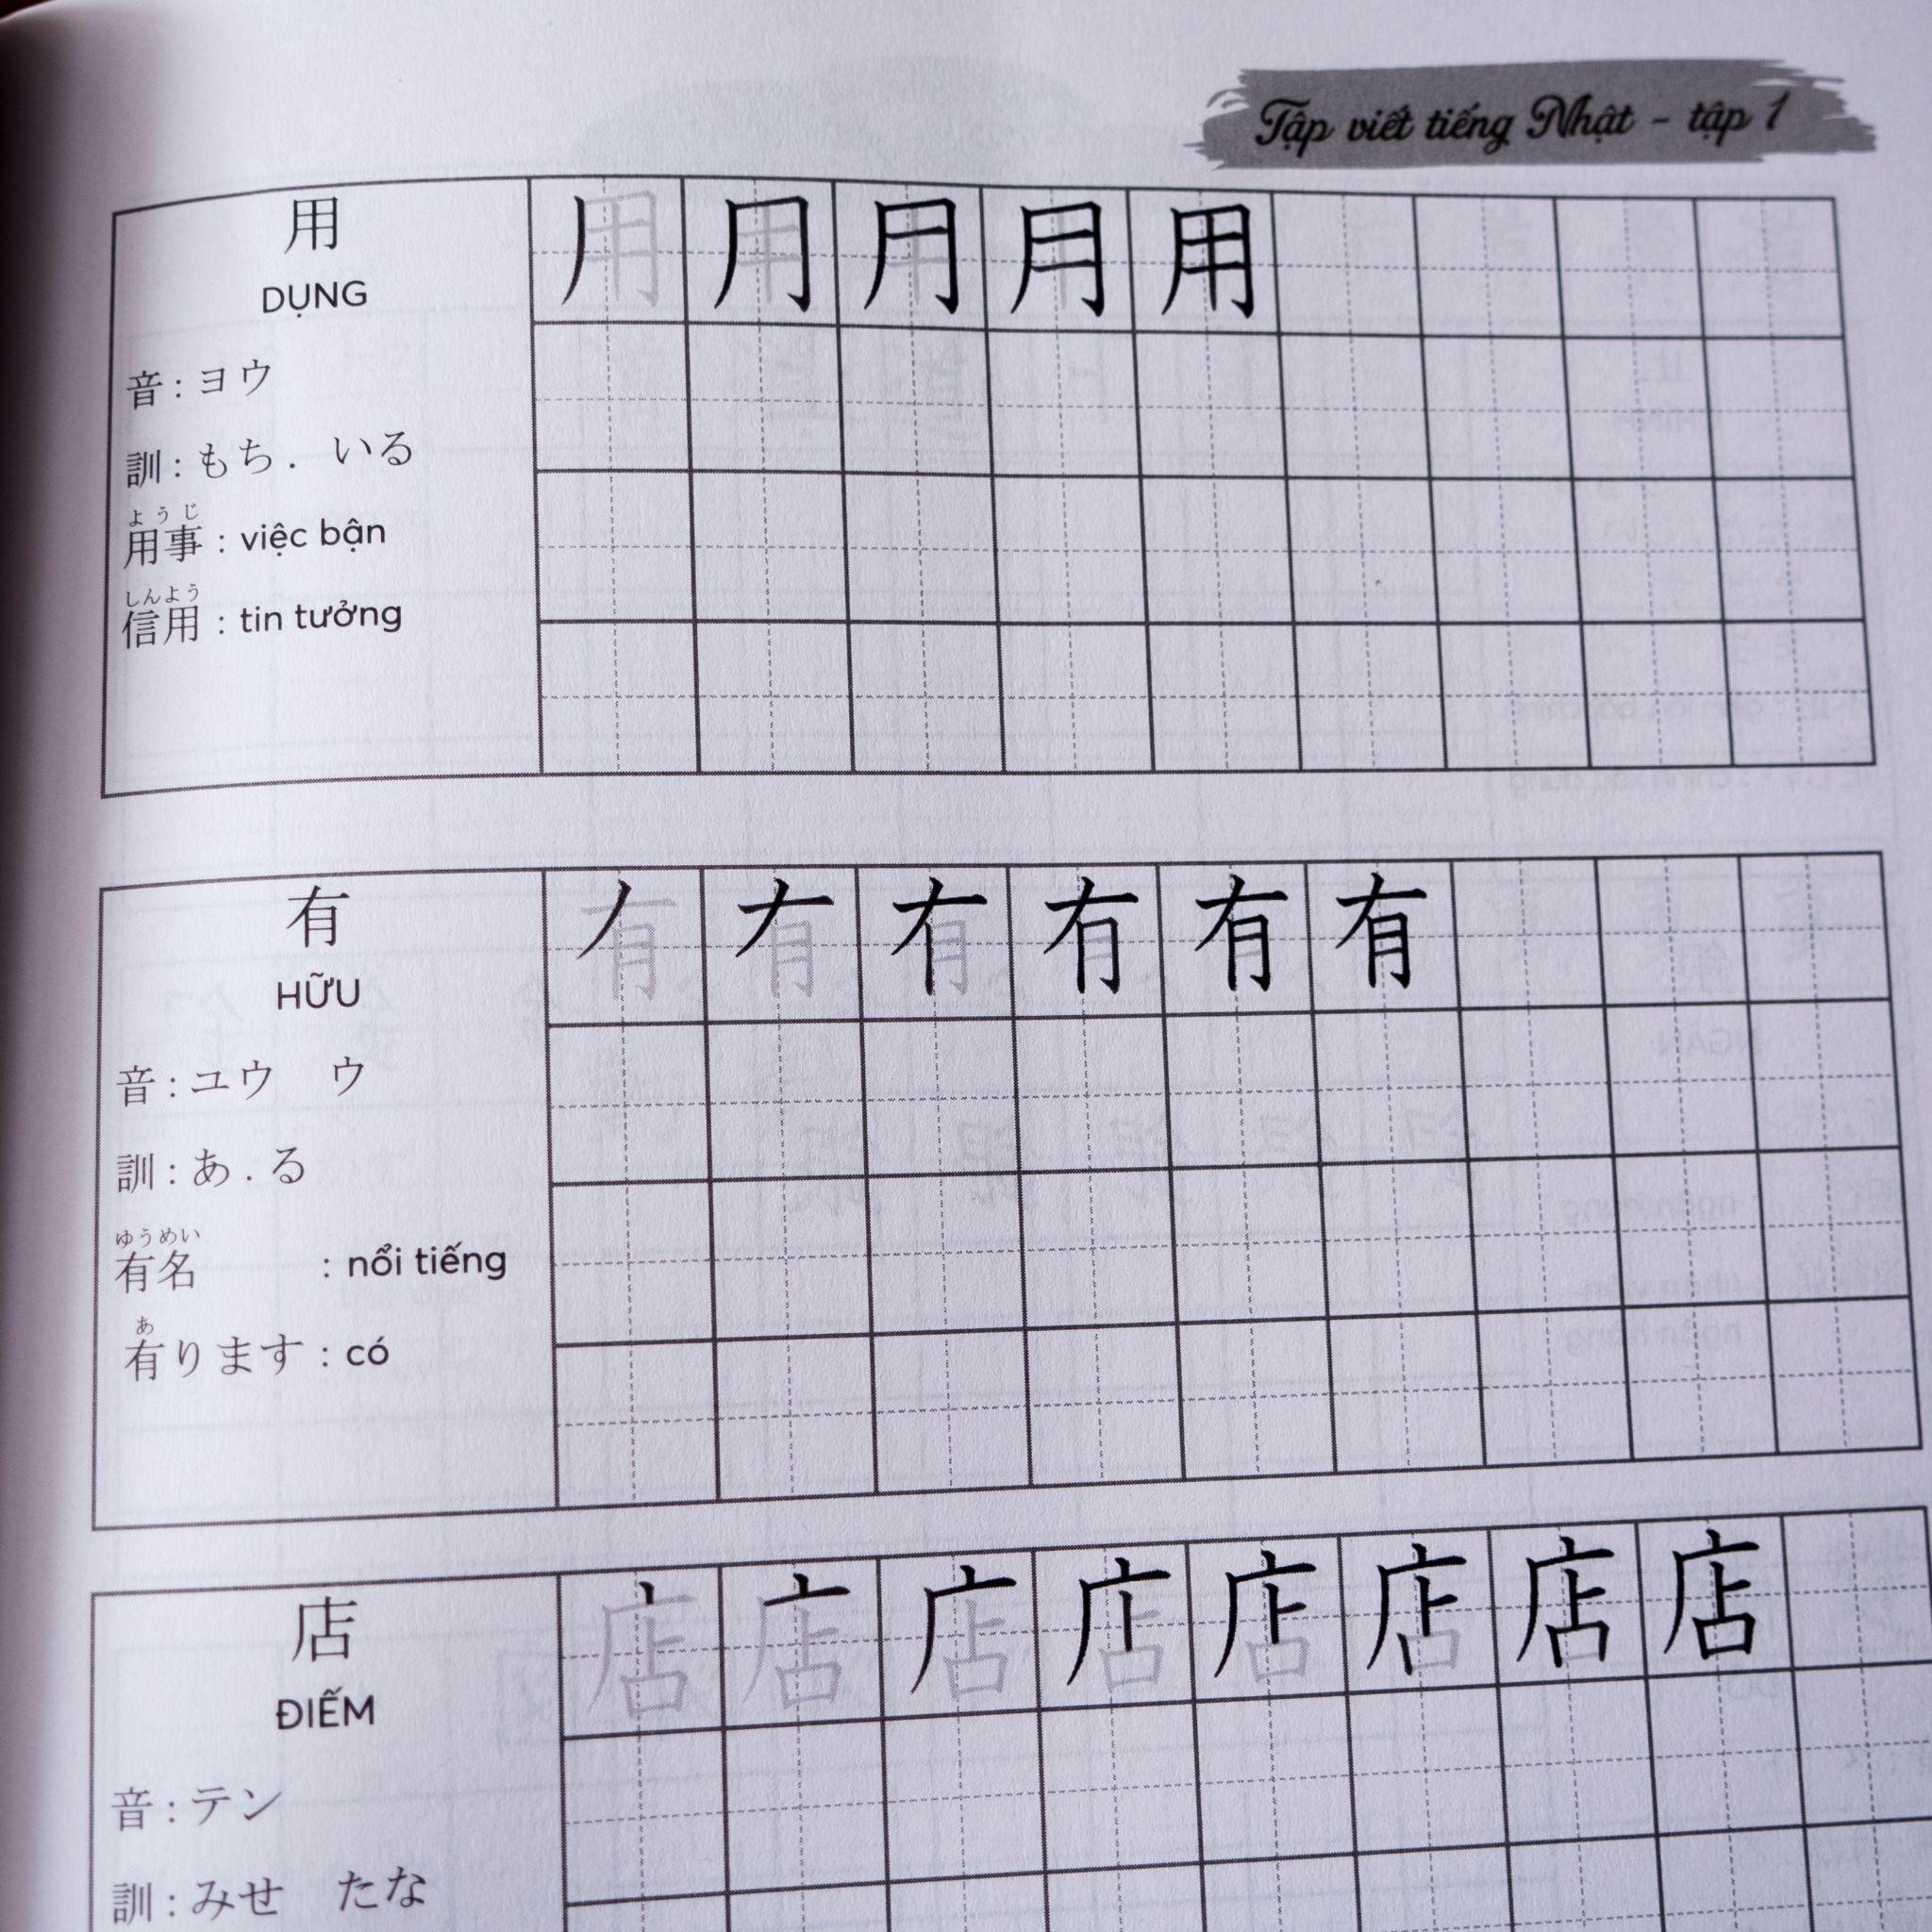 Tập viết tiếng Nhật - tập 1
用
DỤNG
音 : ヨウ
訓 : もち . いる
ようじ
用事 : việc bận
しんよう
信用 : tin tưởng
用
有
HỮU
音 : ユウ ウ
訓 : あ . る
ゆうめい
有名 : nổi tiếng
あ
有ります : có
有
店
ĐIẾM
音 : テン
訓 : みせ たな
店